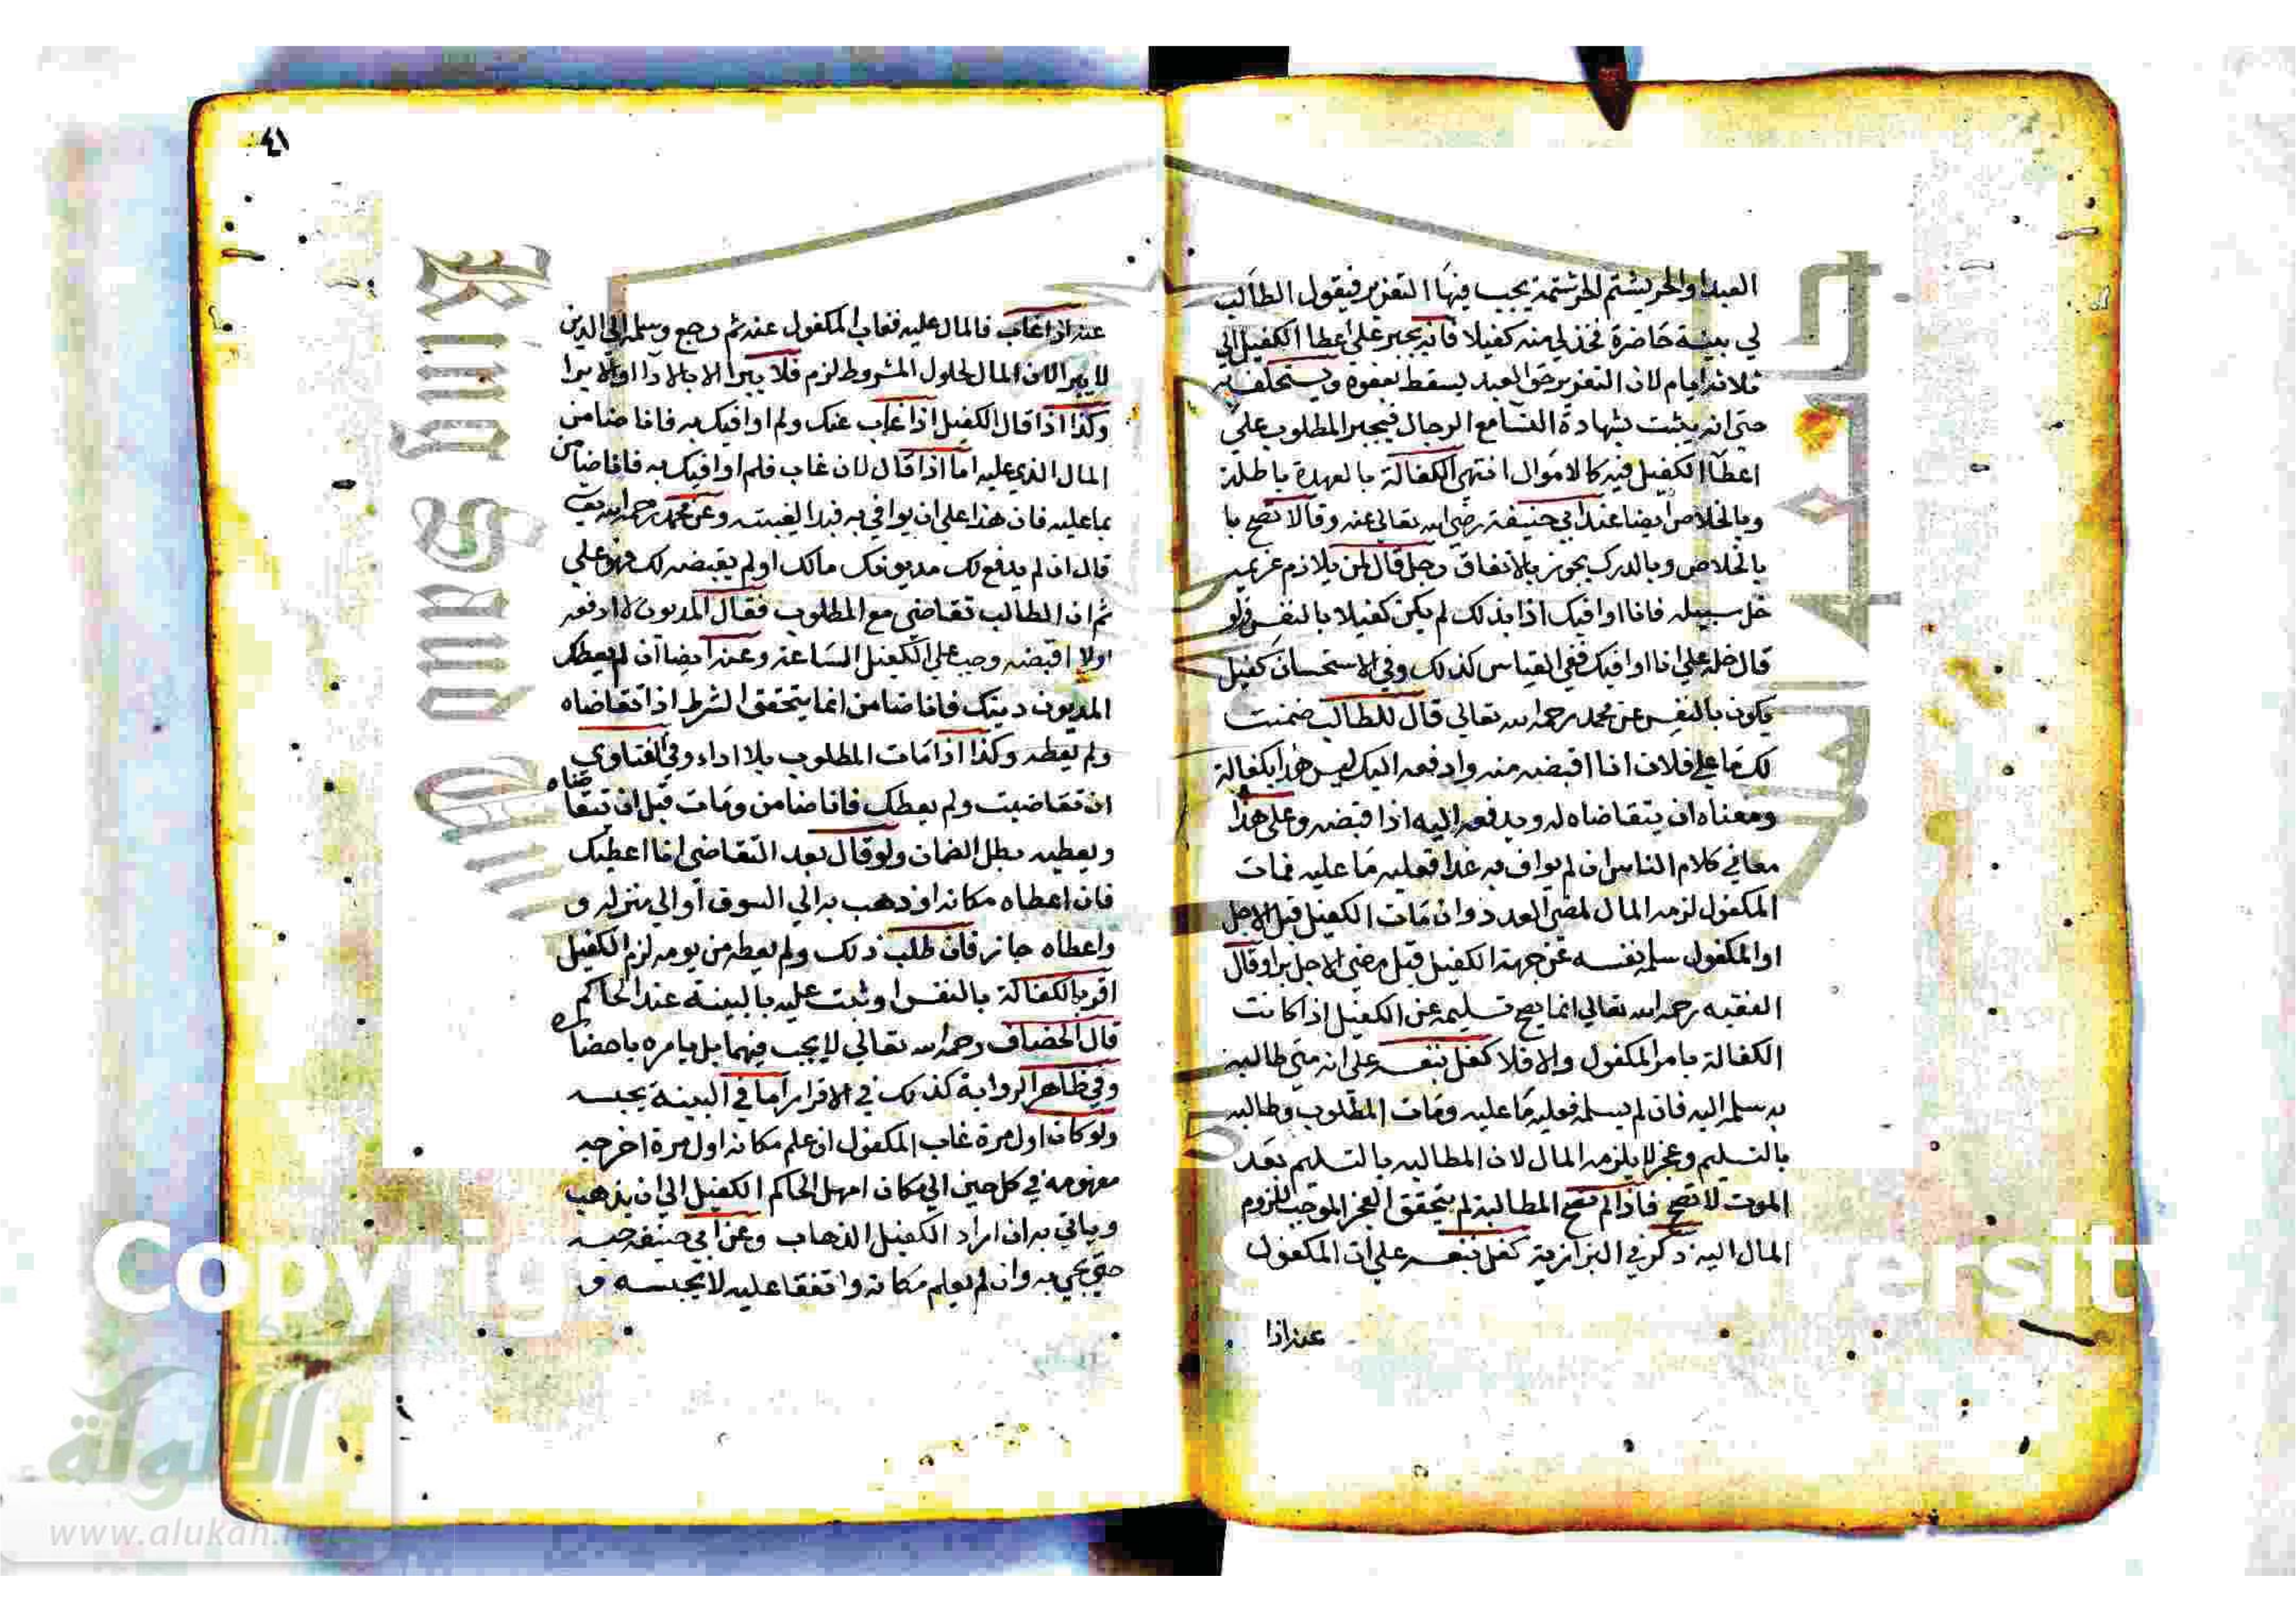 العبد او الحر يشتم الحر شتمة يجب فيها التعزير فيقول الطالب
لي بينة حاضرة فخذ لي منه كفيلا فانه يجبر علي اعطا الكفيل الي
ثلاثة ايام لان التعزير حق العبد يسقط بعفوه ويستحلف به
حتي انه يثبت بشهادة النسا مع الرجال فيجبر المطلوب علي
اعطآ الكفيل فيه كالاموال انتهي الكفالة بالعهدة باطلة
وبالخلاص ايضا عند ابي حنيفة رضي الله تعالي عنه وقالا تصح با
بالخلاص وبالدرك يجوز بالاتفاق رجل قال لمن يلازم غريمه
خل سبيله فانا اوافيك اذا بذلك لم يكن كفيلا بالنفس ولو
قال خله علي انا اوافيك ففي القياس كذلك وفي الاستحسان كفيل
يكون بالنفس عن محمد رحمه الله تعالي قال للطالب ضمنت
لك ما علي فلان انا اقبضه منه وادفعه اليك ليس هذا بكفالة
ومعناه ان يتقاضاه له ويدفعه اليه اذا قبضه وعلي هذا
معاني كلام الناس ان لم يواف به غدا فعليه ما عليه فمات
المكفول لزمه المال لمضي العدد وان مات الكفيل قبل الاجل
او المكفول سلم نفسه عن جهة الكفيل قبل مضي الاجل برا وقال
الفقيه رحمه الله تعالي انما يصح تسليمه عن الكفيل اذا كانت
الكفالة بامر المكفول والا فلا كفل بنفسه علي انه متي طالبه
به سلمه اليه فان لم يسلمه فعليه ما عليه ومات المطلوب وطالبه
بالتسليم وعجز لا يلزمه المال لان المطالبه بالتسليم بعد
الموت لا تصح فاذا لم تصح المطالبة لم يتحقق العجز الموجب للزوم
المال اليه ذكر في البزازية كفل بنفسه علي ان المكفول
عنه اذا
٤١
عنه اذا غاب فالمال عليه فغاب المكفول عنه ثم رجع وسلمه الي الدين
لا يبرا لان المال لحلول المشروط لزم فلا يبرا الا بالادآ او الابرا
وكذا اذا قال الكفيل اذا غاب عنك ولم اوافيك به فانا ضامن
المال الذي عليه اما اذا قال لان غاب فلم اوافيك به فانا ضامن
بما عليه فان هذا علي ان يوافي به قبل الغيبته وعن محمد رحمه الله تعالي
قال ان لم يدفع لك مديونك مالك اولم يقبضه لك فهو علي
ثم ان الطالب تقاضي مع المطلوب فقال المديون لا ادفعه
اولا اقبضه وجب علي الكفيل الساعة وعنه ايضا ان لم يعطك
المديون دينك فانا ضامن انما يتحقق الشرط اذا تقاضاه
ولم يعطه وكذا اذا مات المطلوب بلا اداء وفي الفتاوي
ان تقاضيت ولم يعطك فانا ضامن ومات قبل ان يتقاضاه
ويعطيه بطل الضمان ولو قال بعد التقاضي انا اعطيك
فان اعطاه مكانه او ذهب به الي السوق او الي منزله و
واعطاه جاز فان طلب ذلك ولم يعطه من يومه لزم الكفيل
اقر بالكفالة بالنفس او ثبت عليه بالبينة عند الحاكم
قال الخصاف رحمه الله تعالي لا يجب فيهما بل يامره باحضاره
وفي ظاهر الرواية كذلك في الاقرار اما في البينة يحبسه
ولو كان اول مرة غاب المكفول ان علم مكانه اول مرة اخرجه
معلومة في كل حين الي مكان امهل الحاكم الكفيل الي ان يذهب
وياتي به ان اراد الكفيل الذهاب وعن ابي حنيفه حبسه
حتي يجي به وان لم يعلم مكانه واتفقا عليه لا يحبسه و
King Saud
Copyrig
ersit
الألوكة
www.alukah.net